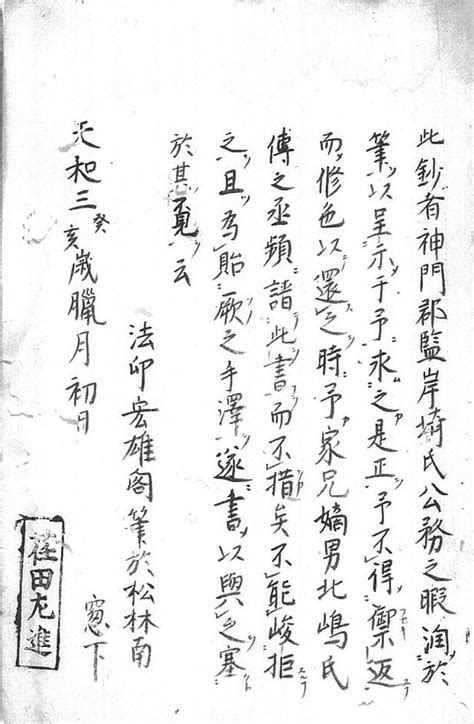 此鈔者神門郡監岸埼氏公務之暇潤於
筆以呈示于予求之是正予不得禦返
而修色以還之時予家兄嫡男北嶋氏
傳之丞頻請此書而不措矣不能峻拒
之且為貽厥之手澤遂書以與之塞
於其覓云
天和三癸亥歲臘月初日
法印宏雄閣筆於松林南
窓下
荏田尤進